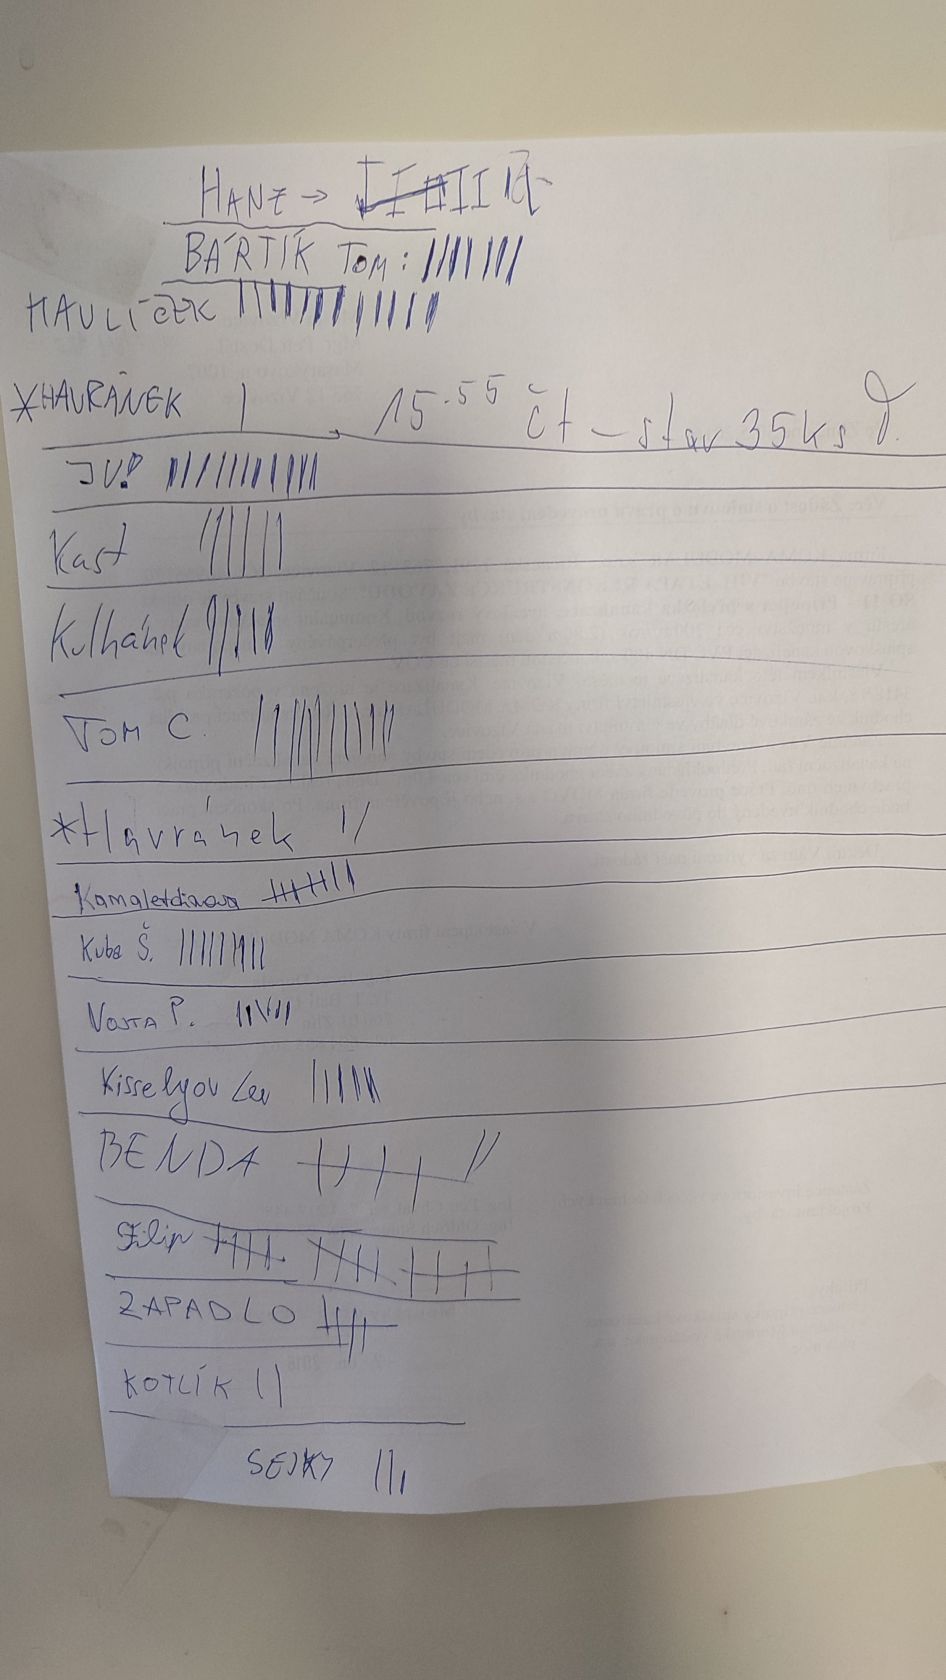 HANZ →
BÁRTÍK TOM: ||||||||
HAVLÍČEK |||||||||||||
*HAVRÁNEK | 15.55 čt – stav 35ks
JV! ||||||||||||
Kast ||||||
Kulhánek ||||||
TOM C. |||||||||||
*Havránek ||
Kamaletdinova |||||||
Kuba Š. |||||||||
VOJTA P. ||||||
Kisselyov Lev ||||||
BENDA |||| ||
Filip |||| |||| ||||
ZAPADLO ||||
KOTLÍK ||
SEJKY |||